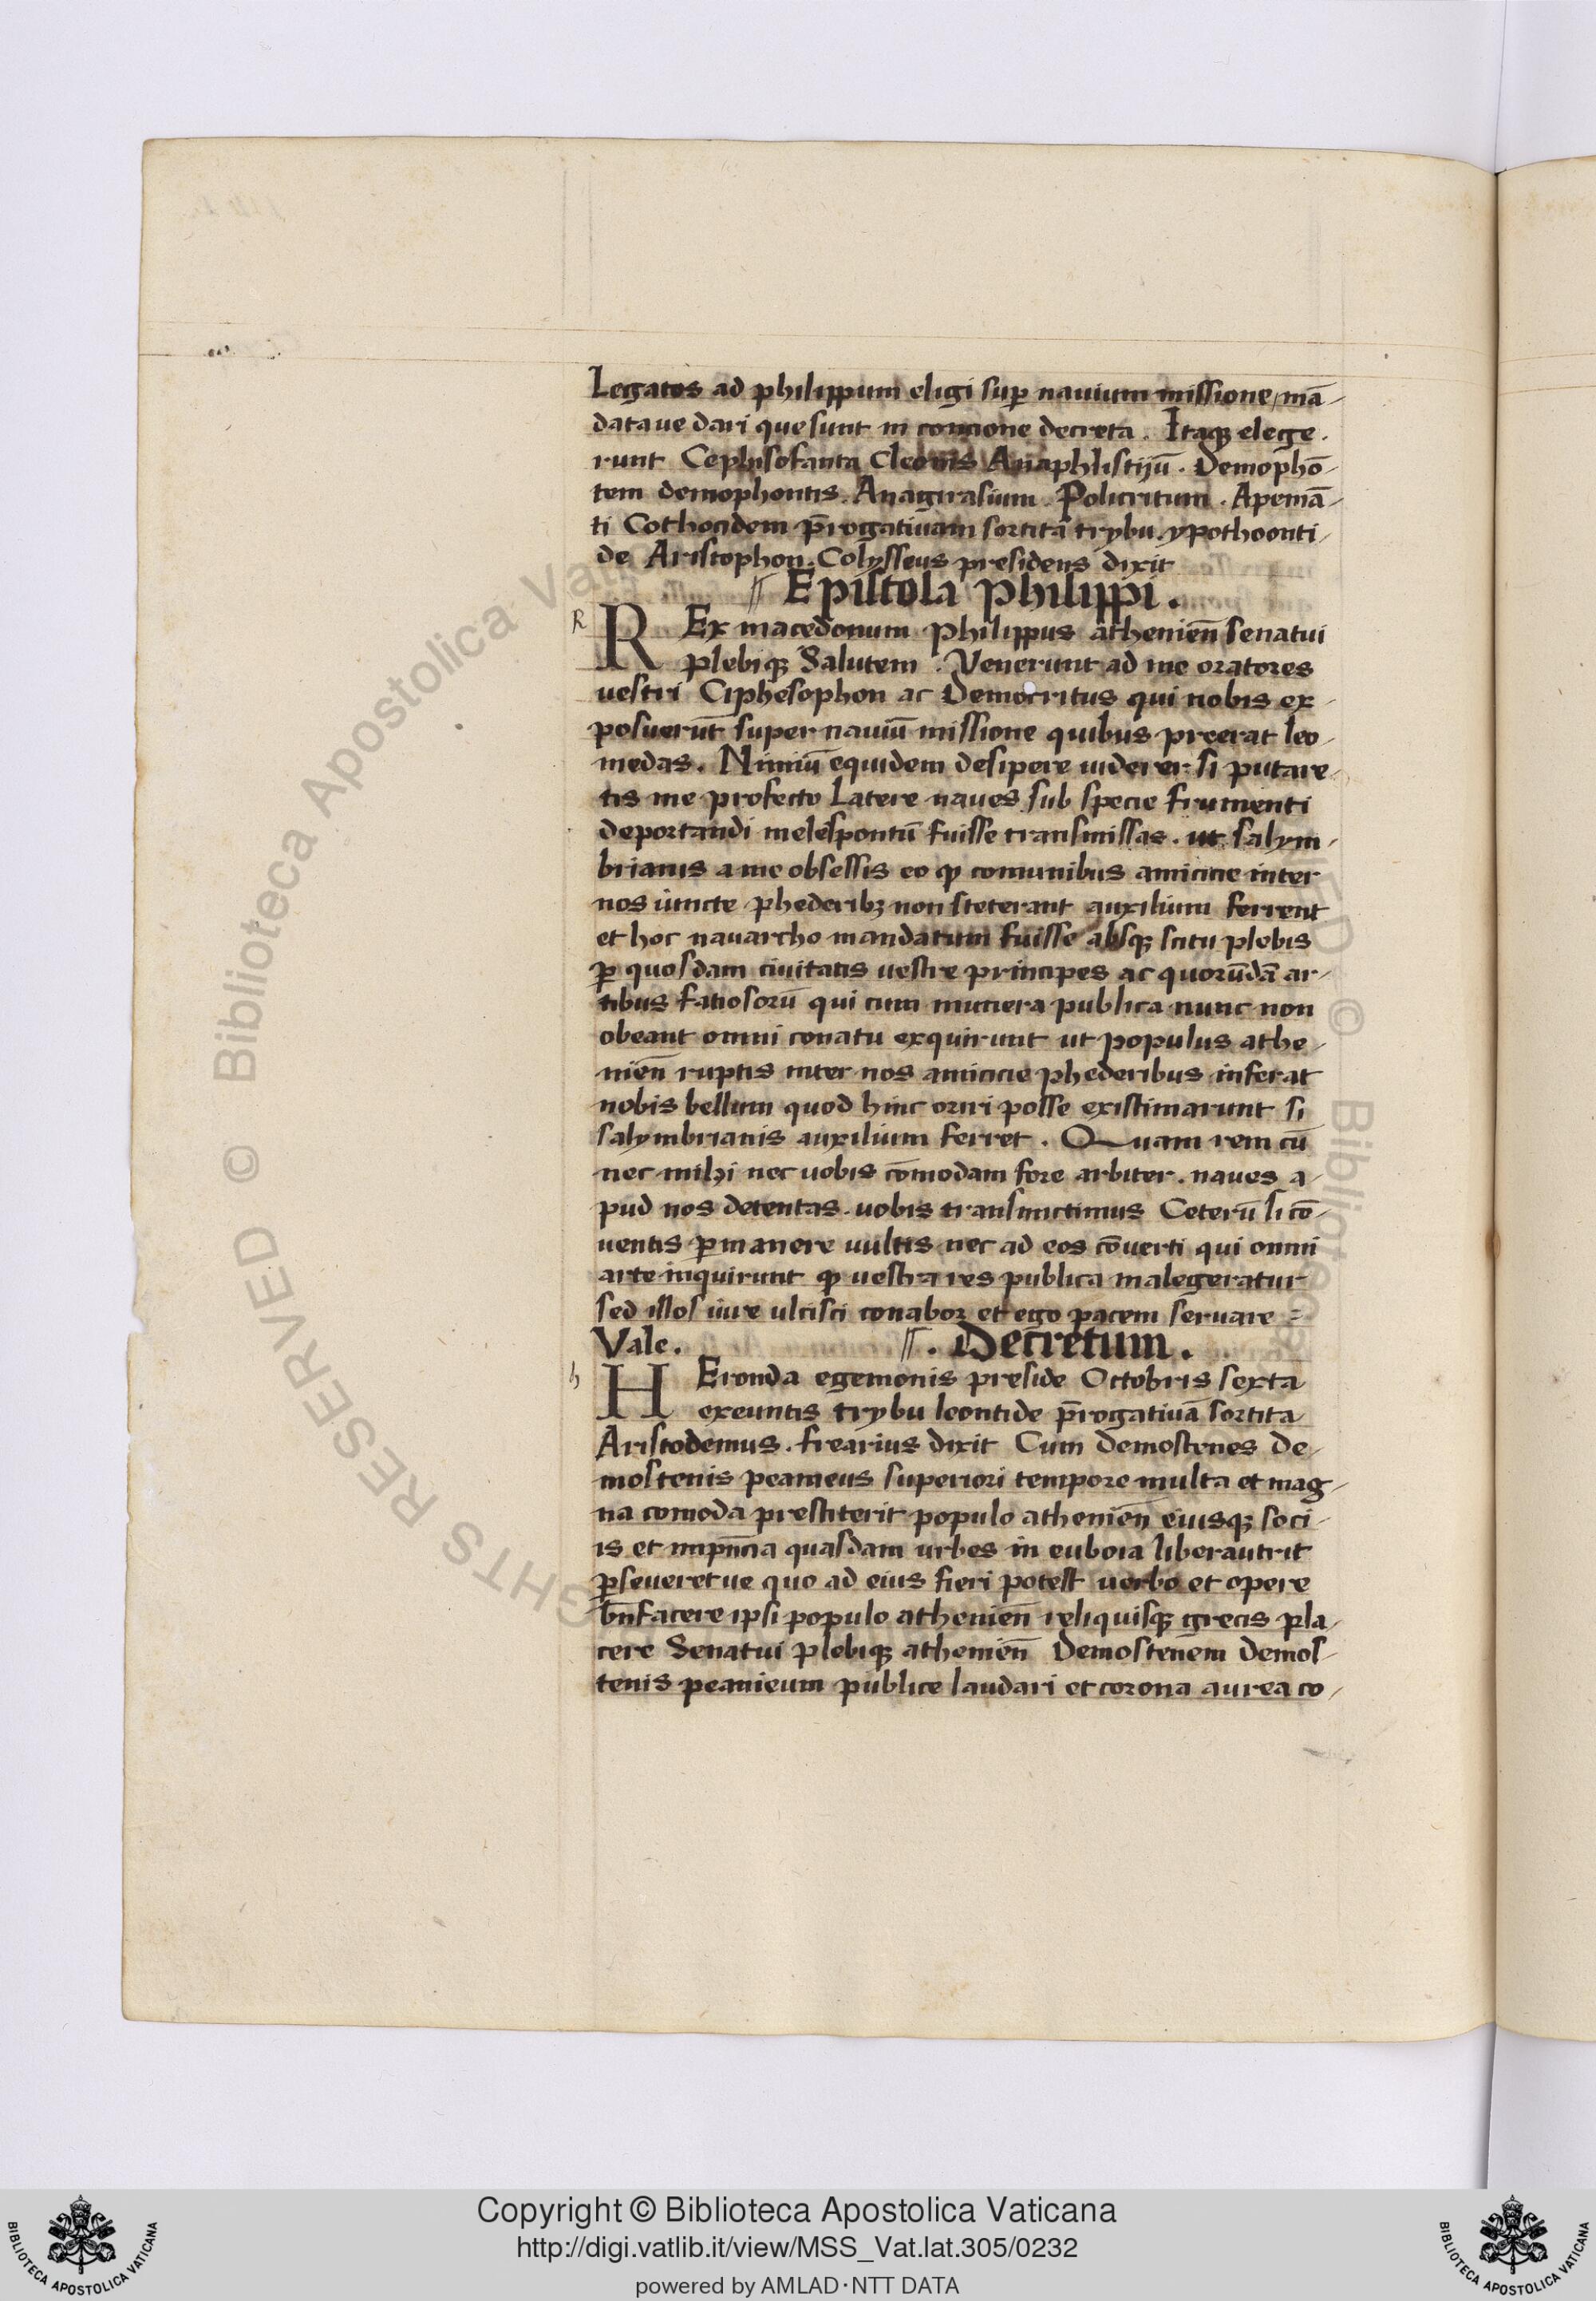 Legatos ad philippum eligi sup̲ nauium missione / mā-
dataue dari que sunt in concione decreta . Itaqꝫ elege.
runt Cephisofanta Cleonis Anaphlistijū . Demophō-
tem demophontis . Anagirasium . Policritum . Apemā-
ti Cothocidem p̄rogatiuam sortitā trybu . ypothoonti-
de Aristophon . Colysseus presidens dixit
Epistola philippi .
R
REx macedonum philippus athenien̄ senatui
plebiqꝫ Salutem . Venerunt ad me oratores
uestri Ciphesophon ac Democritus qui nobis ex-
posuerūt super nauiū missione quibus preerat leo-
medas . Nimiū equidem desipere uiderer si putare-
tis me profecto Latere naues sub specie frumenti
deportandi inelespontū fuisse transmissas . ut salym-
brianis a me obsessis eo ꝙ comunibus amicicie inter
nos iuncte phederibꝫ non steterant auxilium ferrent
et hoc nauarcho mandatum fuisse absqꝫ scitu plebis
ꝑ quosdam ciuitatis uestre principes ac quorūdā ar-
tibus fatiosorū qui cum munera publica nunc non
obeant omni conatu exquirunt ut populus athe-
nien̄ ruptis inter nos amicicie phederibus inferat
nobis bellum quod hinc oriri posse existimarunt si
salymbrianis auxilium ferret . Quam rem cū
nec mihi nec uobis cōmodam fore arbiter . naues a-
pud nos detentas . uobis transmictimus Ceterū si cō-
uentis ꝑmanere uultis nec ad eos cōuerti qui omni
arte inquirunt ꝙ uestra res publica malegeratur
sed illos iure ulcisci conabor et ego pacem seruare =
Vale . . Decretum .
h
HEronda egemonis preside Octobris sexta
exeuntis trybu leontide p̄rogatiuā sortita
Aristodemus . frearius dixit Cum Demostenes De-
mostenis peameus superiori tempore multa et mag-
na comoda prestiterit populo athenien̄ eiusqꝫ soci-
is et inp̄ncia quasdam urbes in euboia liberauerit
ꝑseueretue quo ad eius fieri potest uerbo et opere
bn̄facere ipsi populo athenien̄ reliquisqꝫ grecis pla-
cere Senatui plebiqꝫ athenien̄ Demostenem demos-
tenis peanieum publice laudari et corona aurea co-
Copyright © Biblioteca Apostolica Vaticana
http://digi.vatlib.it/view/MSS_Vat.lat.305/0232
powered by AMLAD·NTT DATA